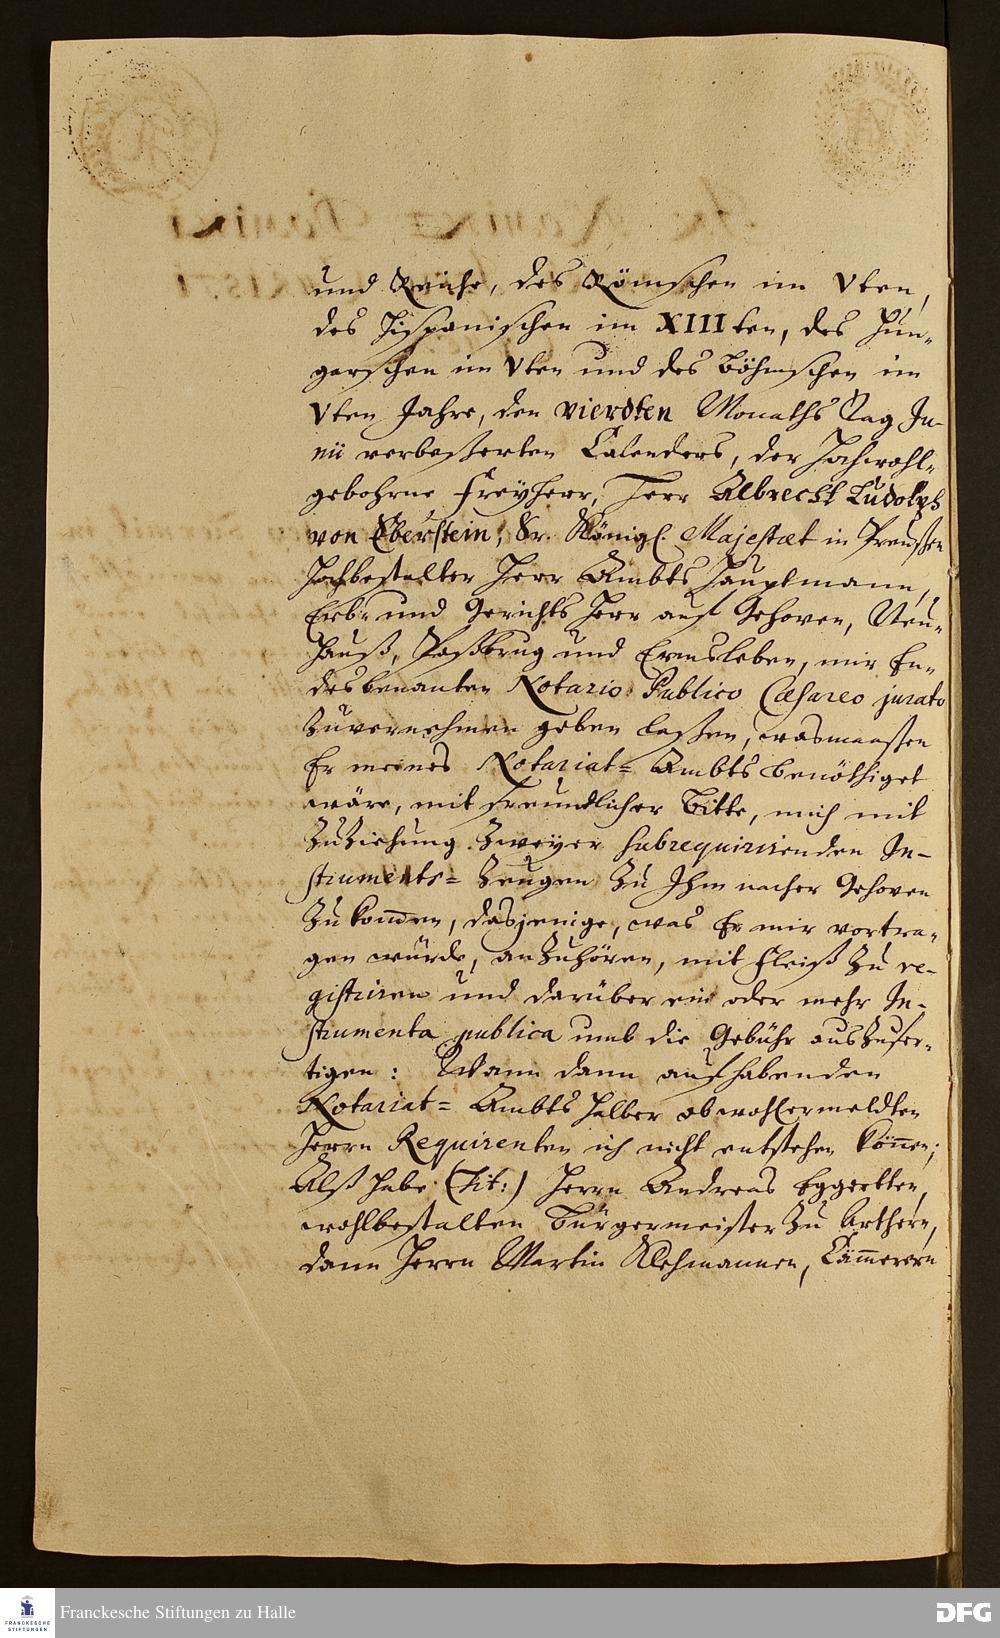 und Reiche, des Römischen im Vten,
des Hispanischen im XIIIten, des Hun-
garschen im Vten und des Böhmschen im
Vten Jahre, den vierdten Monaths Tag Ju-
nii verbeßerten Calenders, der Hochwohl-
gebohrne Freyherr, Herr Albrecht Ludolph
von Eberstein, Sr. Königl. Majestæt in Preußen
Hochbestalter Herr Ambts Hauptmann,
Erb- und Gerichts Herr auf Gehoven, Neu-
hauß, Paßbrug und Ermsleben, mir En-
desbenanten Notario Publico Cæsareo jurato
zuvernehmen geben laßen, wasmaassen
Er meines Notariat= Ambts benöthiget
wäre, mit freundlicher Bitte, mich mit
Zuziehung zweyer subrequirirenden In-
struments= Zeugen zu Ihm nacher Gehoven
zu kommen, dasjenige, was Er mir vortra-
gen würde, anzuhören, mit Fleiß zu re-
gistriren und darüber ein oder mehr In-
strumenta publica umb die Gebühr auszufer-
tigen: Wann dann aufhabenden
Notariat= Ambts halber obwohlermeldten
Herrn Requirenten ich nicht entstehen können;
Alß habe (Tit:) Herrn Andreas Eggertten,
wohlbestalten Bürgermeister zu Arthern,
dann Herrn Martin Klehmannen, Cämmerern
Franckesche Stiftungen zu Halle
FRANCKESCHE
STIFTUNGEN
DFG